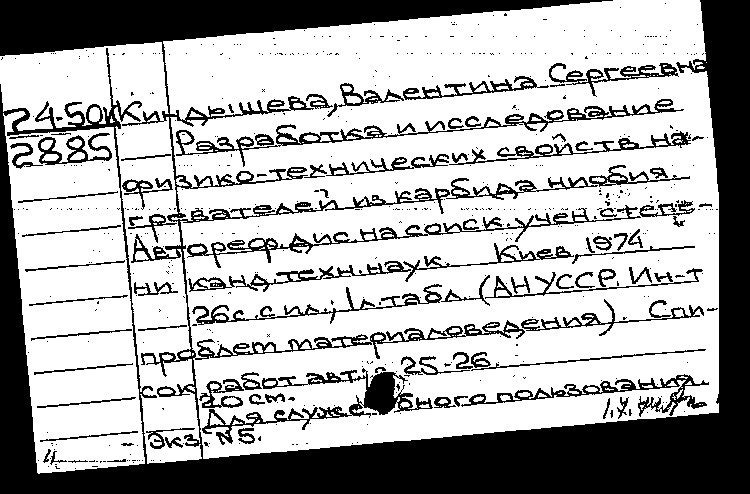 74-50К Киндышева, Валентина Сергеевна
2885 Разработка и исследование
физико-технических свойств на-
гревателей из карбида ниобия.
Автореф. дис. на соиск. учен. степе-
ни канд. техн. наук. Киев, 1974.
26с. с ил.; 1л. табл. (АН УССР. Ин-т
проблем материаловедения). Спи-
сок работ авт.: 25-26.
20 см.
Для служебного пользования.
Экз. №5.